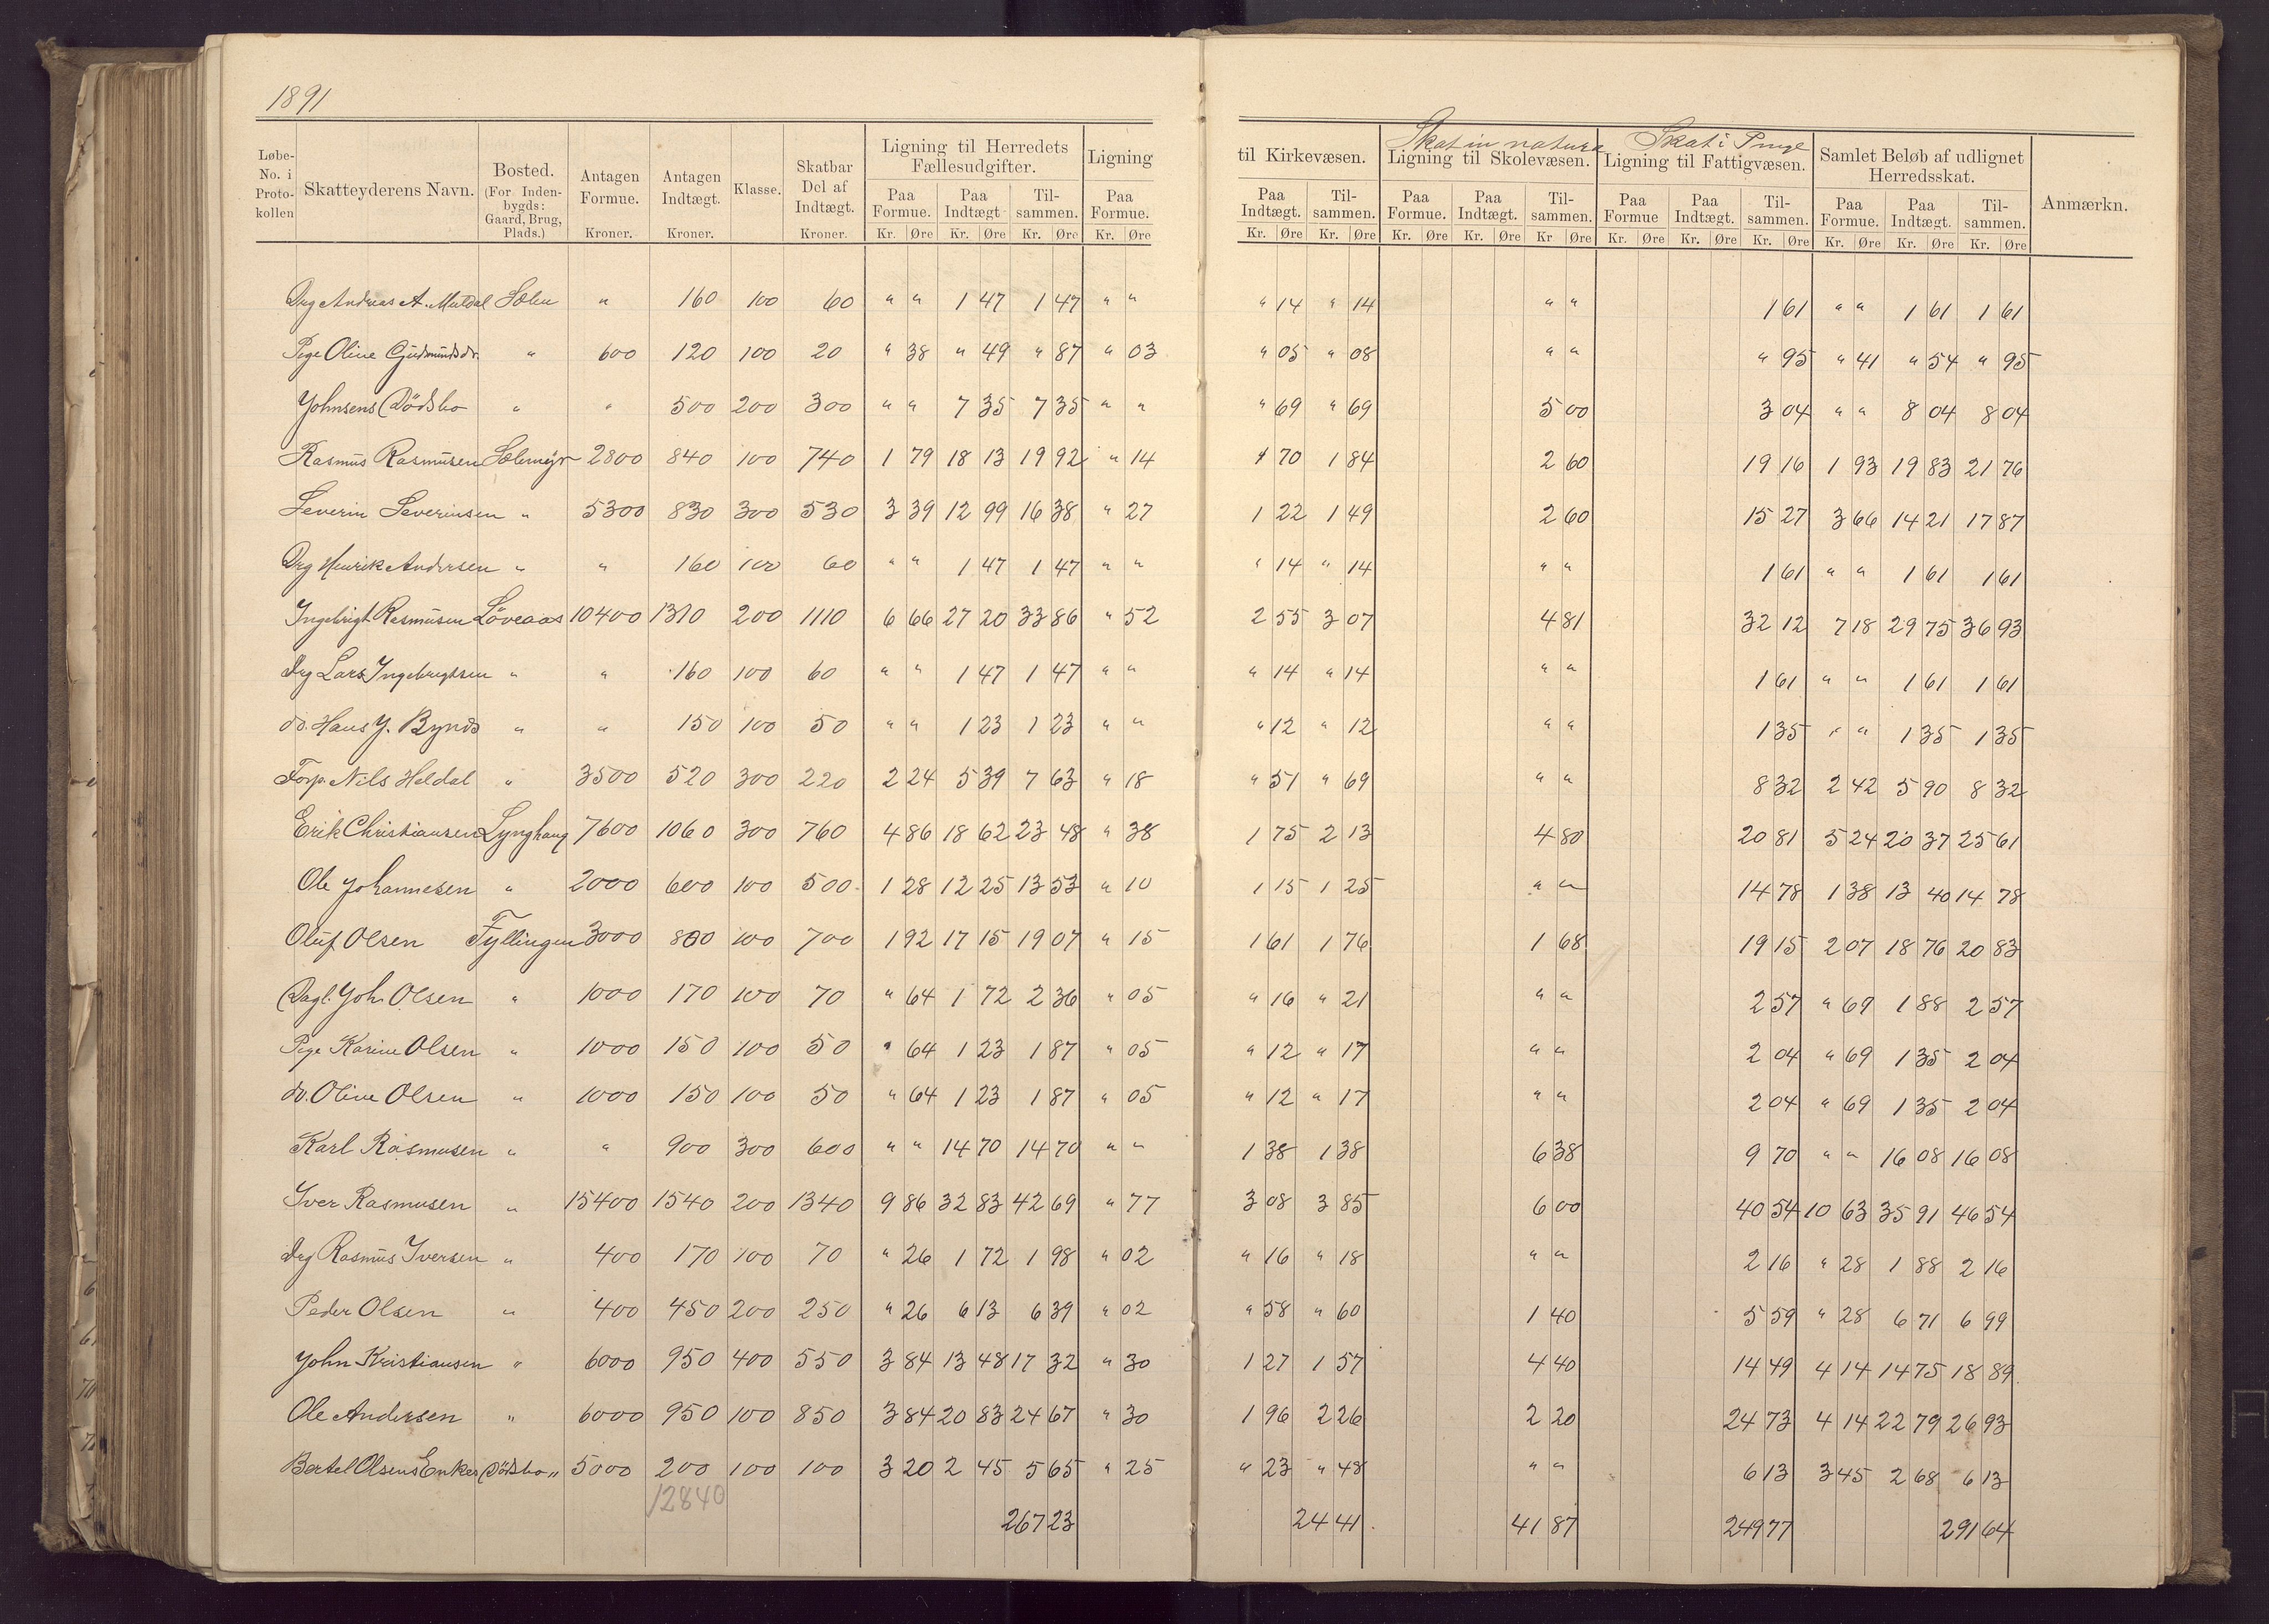 1891
Løbe-No. i Proto-kollen | Skatteyderens Navn. | Bosted. (For Inden-bygds: Gaard, Brug, Plads.) | Antagen Formue. Kroner. | Antagen Indtægt. Kroner. | Klasse. | Skatbar Del af Indtægt. Kroner. | Ligning til Herredets Fællesudgifter. Paa Formue. Kr. Øre Paa Indtægt Kr. Øre Til-sammen. Kr. Øre | Ligning Paa Formue. Kr. Øre | til Kirkevæsen. Paa Indtægt. Kr. Øre Til-sammen. Kr. Øre | Skat in natura Ligning til Skolevæsen. Paa Formue. Kr. Øre Paa Indtægt. Kr. Øre Til-sammen. Kr Øre | Skat i Penge Ligning til Fattigvæsen. Paa Formue Kr. Øre Paa Indtægt. Kr. Øre Til-sammen. Kr. Øre | Samlet Beløb af udlignet Herredsskat. Paa Formue. Kr. Øre Paa Indtægt. Kr. Øre Til-sammen. Kr. Øre | Anmærkn.
Drg Andreas A. Meldal Sælen " 160 100 60 " " 1 47 1 47 " " " 14 " 14 " " 1 61 " " 1 61 1 61
Pige Oline Gudmundsdr. " 600 120 100 20 " 38 " 49 " 87 " 03 " 05 " 08 " " " 95 " 41 " 54 " 95
Johnsens Dödsbo " " 500 200 300 " " 7 35 7 35 " " " 69 " 69 5 00 3 04 " " 8 04 8 04
Rasmus Rasmusen Sælemyr 2800 840 100 740 1 79 18 13 19 92 " 14 1 70 1 84 2 60 19 16 1 93 19 83 21 76
Severin Severinsen " 5300 830 300 530 3 39 12 99 16 38 " 27 1 22 1 49 2 60 15 27 3 66 14 21 17 87
Drg Henrik Andersen " " 160 100 60 " " 1 47 1 47 " " " 14 " 14 " " 1 61 " " 1 61 1 61
Ingebrigt Rasmusen Löveaas 10400 1310 200 1110 6 66 27 20 33 86 " 52 2 55 3 07 4 81 32 12 7 18 29 75 36 93
Drg Lars Ingebrigtsen " " 160 100 60 " " 1 47 1 47 " " " 14 " 14 " " 1 61 " " 1 61 1 61
do. Hans J. Bynds " " 150 100 50 " " 1 23 1 23 " " " 12 " 12 " " 1 35 " " 1 35 1 35
Forp. Nils Heldal " 3500 520 300 220 2 24 5 39 7 63 " 18 " 51 " 69 " " 8 32 2 42 5 90 8 32
Erik Christiansen Lynghaug 7600 1060 300 760 4 86 18 62 23 48 " 38 1 75 2 13 4 80 20 81 5 24 20 37 25 61
Ole Johannesen " 2000 600 100 500 1 28 12 25 13 53 " 10 1 15 1 25 " " 14 78 1 38 13 40 14 78
Oluf Olsen Fyllingen 3000 800 100 700 1 92 17 15 19 07 " 15 1 61 1 76 1 68 19 15 2 07 18 76 20 83
Dagl. Joh. Olsen " 1000 170 100 70 " 64 1 72 2 36 " 05 " 16 " 21 " " 2 57 " 69 1 88 2 57
Pige Karine Olsen " 1000 150 100 50 " 64 1 23 1 87 " 05 " 12 " 17 " " 2 04 " 69 1 35 2 04
do. Oline Olsen " 1000 150 100 50 " 64 1 23 1 87 " 05 " 12 " 17 " " 2 04 " 69 1 35 2 04
Karl Rasmusen " " 900 300 600 " " 14 70 14 70 " " 1 38 1 38 6 38 9 70 " " 16 08 16 08
Iver Rasmusen " 15400 1540 200 1340 9 86 32 83 42 69 " 77 3 08 3 85 6 00 40 54 10 63 35 91 46 54
Drg Rasmus Iversen " 400 170 100 70 " 26 1 72 1 98 " 02 " 16 " 18 " " 2 16 " 28 1 88 2 16
Peder Olsen " 400 450 200 250 " 26 6 13 6 39 " 02 " 58 " 60 1 40 5 59 " 28 6 71 6 99
John Kristiansen " 6000 950 400 550 3 84 13 48 17 32 " 30 1 27 1 57 4 40 14 49 4 14 14 75 18 89
Ole Andersen " 6000 950 100 850 3 84 20 83 24 67 " 30 1 96 2 26 2 20 24 73 4 14 22 79 26 93
Bertel Olsens Enkes Dödsbo " 5000 200 100 100 3 20 2 45 5 65 " 25 " 23 " 48 " " 6 13 3 45 2 68 6 13
12840
267 23 24 41 41 87 249 77 291 64